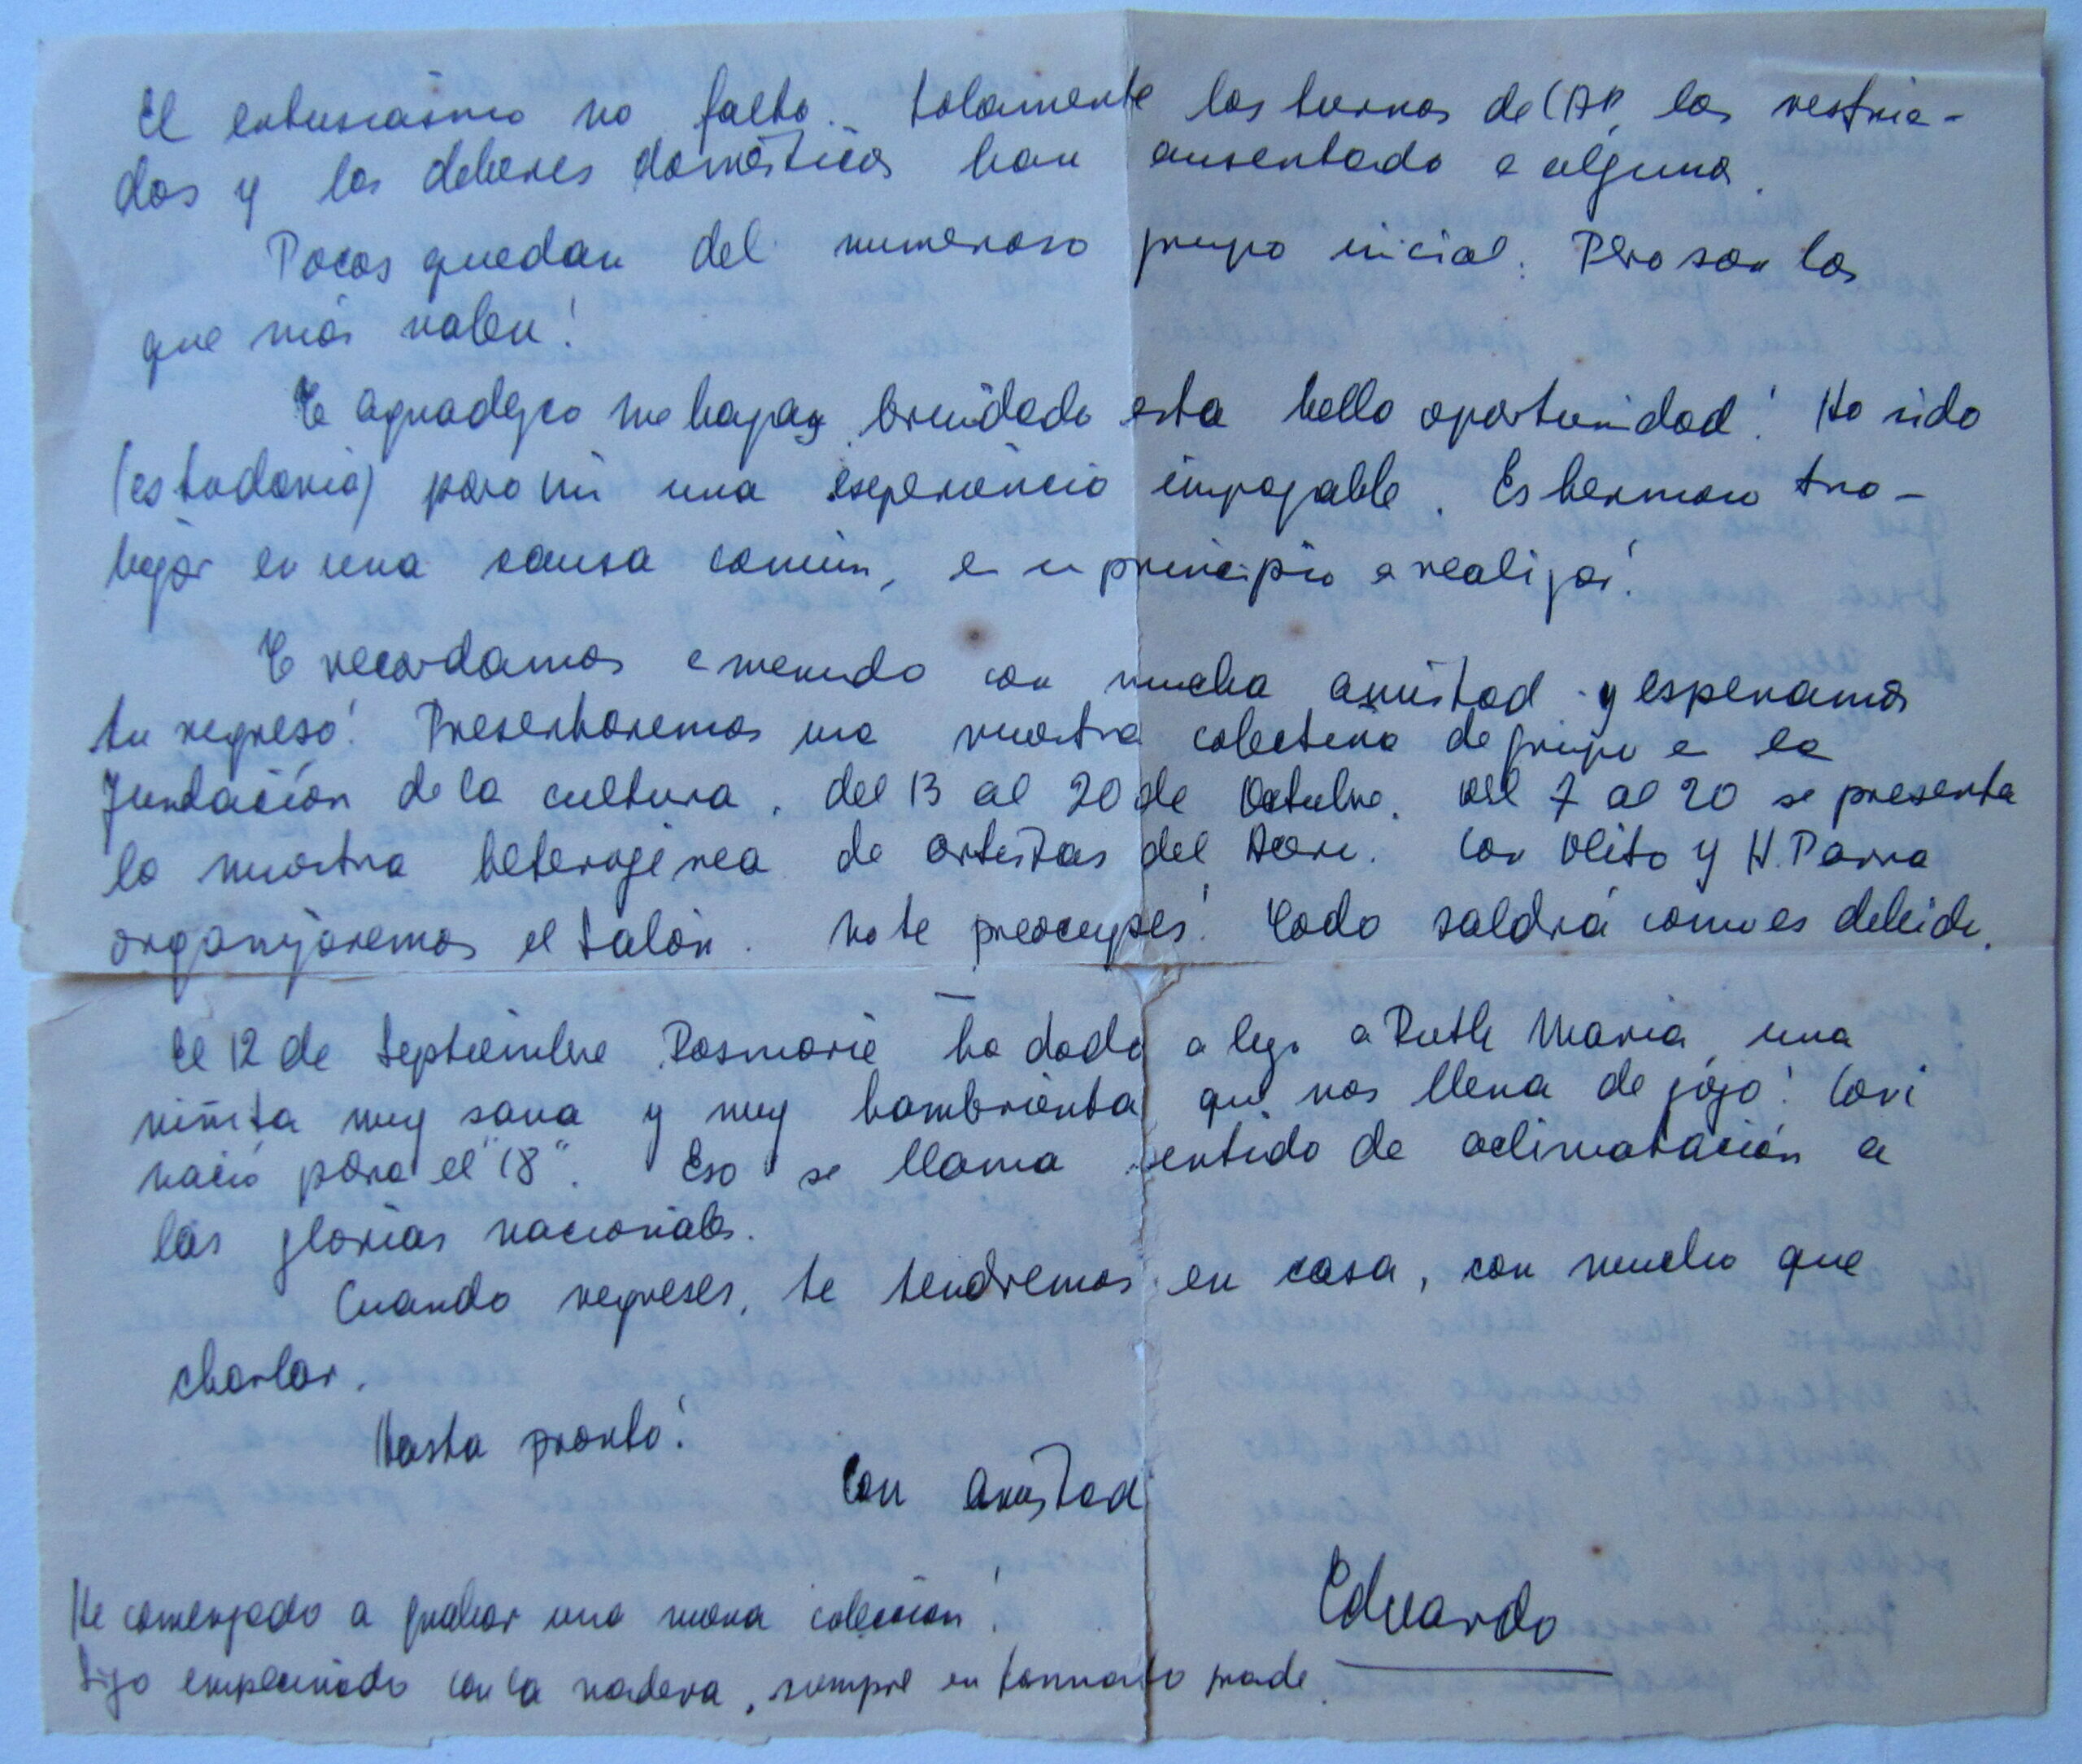 El entusiasmo no falta. Solamente los turnos de CAP, los resfria-
dos y los deberes domésticos han ausentado a alguna.
Pocos quedan del numeroso grupo inicial. Pero son los
que más valen!
Te agradezco me hayas brindado esta bella oportunidad! Ha sido
(es todavía) para mi una experiencia impagable. Es hermoso tra-
bajar en una causa común, en un principio a realizar!
Te recordamos a menudo con mucha amistad y esperamos
tu regreso! Presentaremos una muestra colectiva de grupo en la
Fundación de la cultura, del 13 al 20 de Octubre. Del 7 al 20 se presenta
la muestra heterogénea de artistas del Con Olito y H. Parra
organizaremos el Salón. No te preocupes! Todo saldrá como es debido.
El 12 de Septiembre Rosmarie ha dado a luz a Ruth Maria, una
niñita muy sana y muy hambrienta que nos llena de gozo! Casi
nació para el "18". Eso se llama sentido de aclimatación a
las glorias nacionales.
Cuando regreses, te tendremos en casa, con mucho que
charlar.
Hasta pronto!
Con amistad
Eduardo
He comenzado a grabar una nueva colección!
Sigo empecinado con la madera, siempre en formato grande.